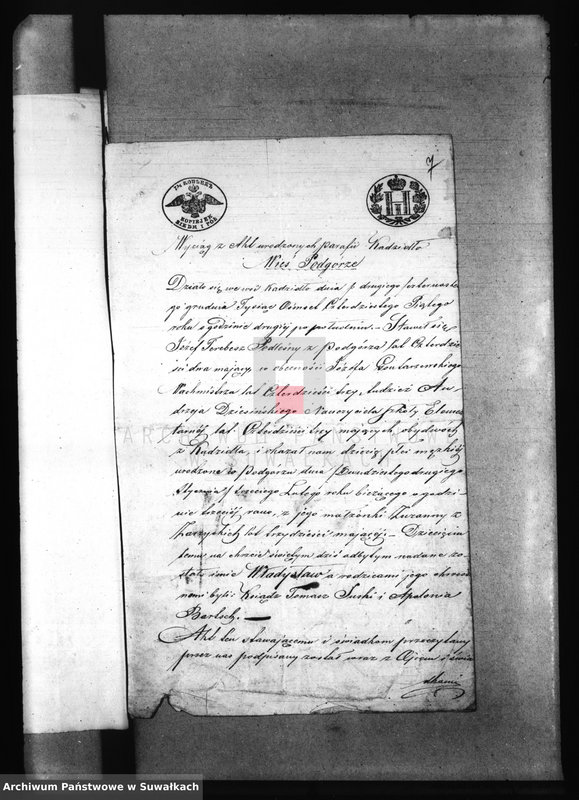 7
7½ КОПѢЕКЪ
KOPIJEK
SIEDM I PÓŁ
Wyciąg z Akt urodzonych parafii Kadzidło
Wieś Podgórze
Działo się we wsi Kadzidło dnia drugiego /czternaste
go grudnia Tysiąc Ośmset Czterdziestego Piątego
roku o godzinie drugiej po południu. – Stawił się
Józef Terebesz Podleśny z Podgórza lat Czterdzie
ści dwa mający w obecności Józefa
Wachmistrza lat Czterdzieści trzy, tudzież An
drzeja Dziesińskiego Nauczyciela Szkoły Elemen
tarnéj lat Czterdzieści trzy mających, obydwóch
z Kadzidła, i okazał nam dziecię płci męzkiéj
urodzone w Podgórzu dnia /Dwudziestego drugiego
Stycznia / trzeciego Lutego roku bieżącego o godzi
nie trzeciéj rano, z jego małżonki Zuzanny z
Zarzyckich lat trzydzieści mającéj. – Dziecięciu
temu na chrzcie świętym dziś odbytym nadane zo
stało imie Władysław a rodzicami jego chrzest
nemi byli: Ksiądz Tomasz Surki i Apolonia
Bartsch. –
Akt ten stawającemu i świadkom przeczytany
przez nas podpisany został wraz z Ojcem i świa
dkami
ARCHIWUM PAŃSTWOWE
W SUWAŁKACH
Archiwum Państwowe w Suwałkach